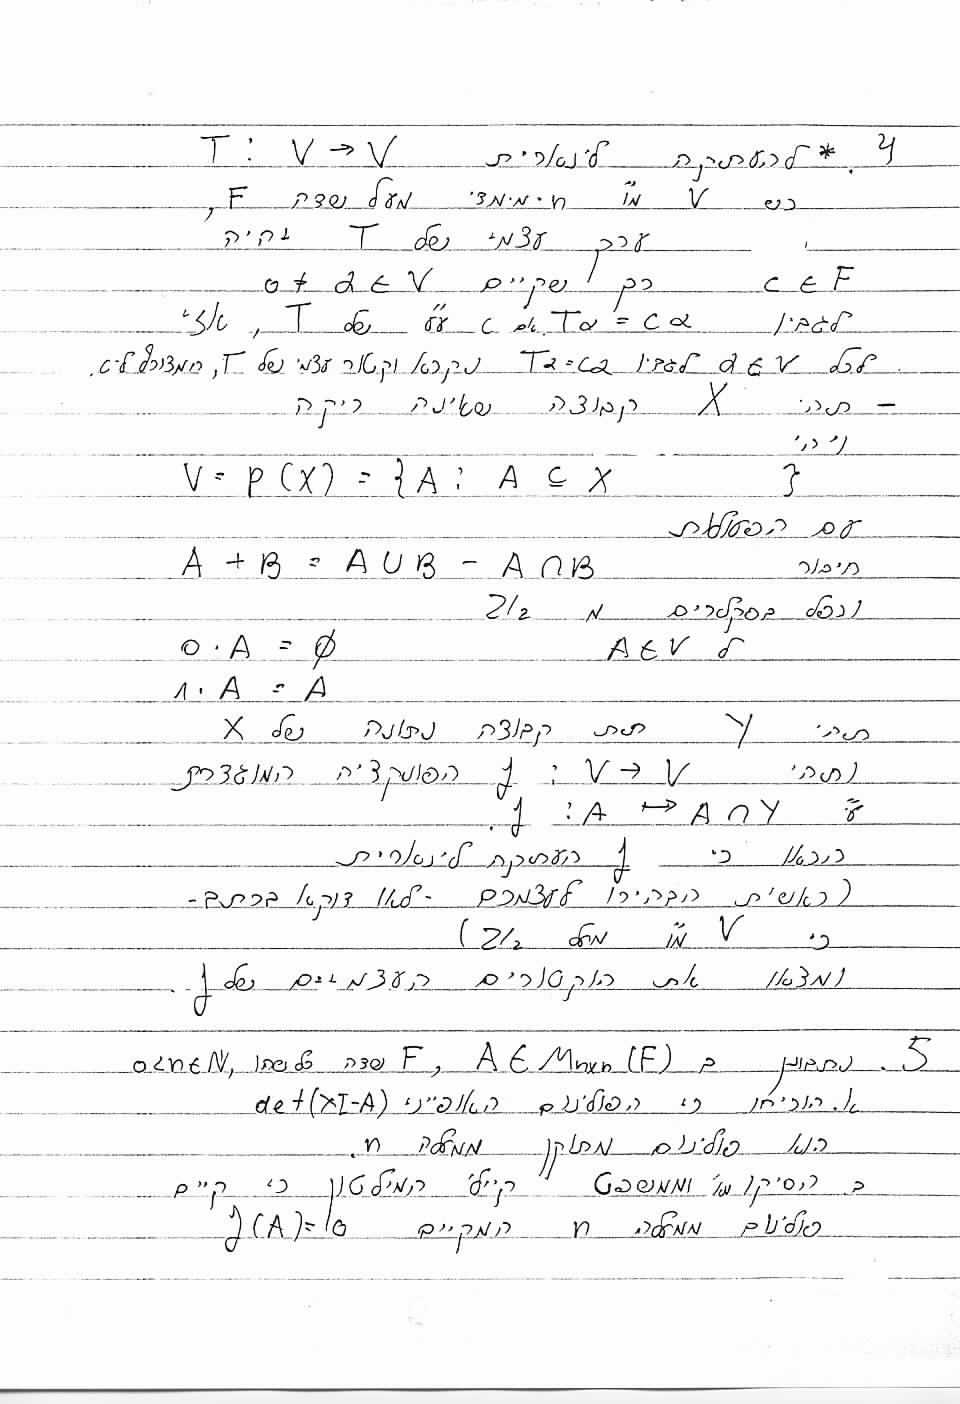 4. * להעתקה לינארית T : V → V
כש V מ"ו n-מימדי מעל שדה F,
ערך עצמי של T יהיה
c ∈ F כך שקיים 0 ≠ α ∈ V
לגביו Tα = cα אם c ע"ע של T, אזי
לכל α ∈ V לגביו Tα=cα נקרא וקטור עצמי של T, המצורף ל-c.
– תהי X קבוצה שאינה ריקה
ויהי
V = P(X) = {A : A ⊆ X }
עם הפעולות
חיבור A + B = A ∪ B - A ∩ B
וכפל בסקלרים מ Z/2
ל A ∈ V 0 · A = ∅
1 · A = A
תהי Y תת קבוצה נתונה של X
ותהי f : V → V הפונקציה המוגדרת
ע"י f : A ↦ A ∩ Y.
הראו כי f העתקה לינארית
(ראשית הבהירו לעצמכם -לאו דוקא בכתב-
כי V מ"ו מעל Z/2)
ומצאו את הוקטורים העצמיים של f.
5. נתבונן ב A ∈ Mnxn(F), F שדה כלשהו, 0<n∈N
א. הוכיחו כי הפולינום האופייני det(XI-A)
הוא פולינום מתוקן ממעלה n.
ב. הסיקו מא' וממשפט קיילי המילטון כי קיים
פולינום ממעלה n המקיים f(A)=0